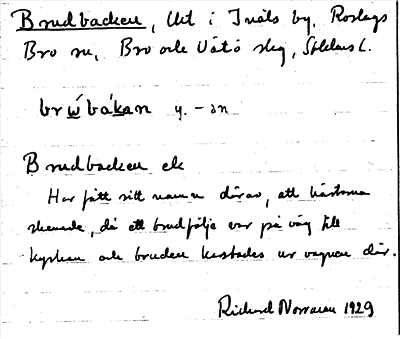 Brudbacken, Utt i Inåls by, Roslags
Bro sn, Bro och Vätö skg, Sthlms l.
brẃbákan y. -ən
Brudbacken ek
Har fått sitt namn därav, att hästarna
skenade, då ett brudfölje var på väg till
kyrkan och bruden kastades ur vagnen där.
Richard Norrman 1929